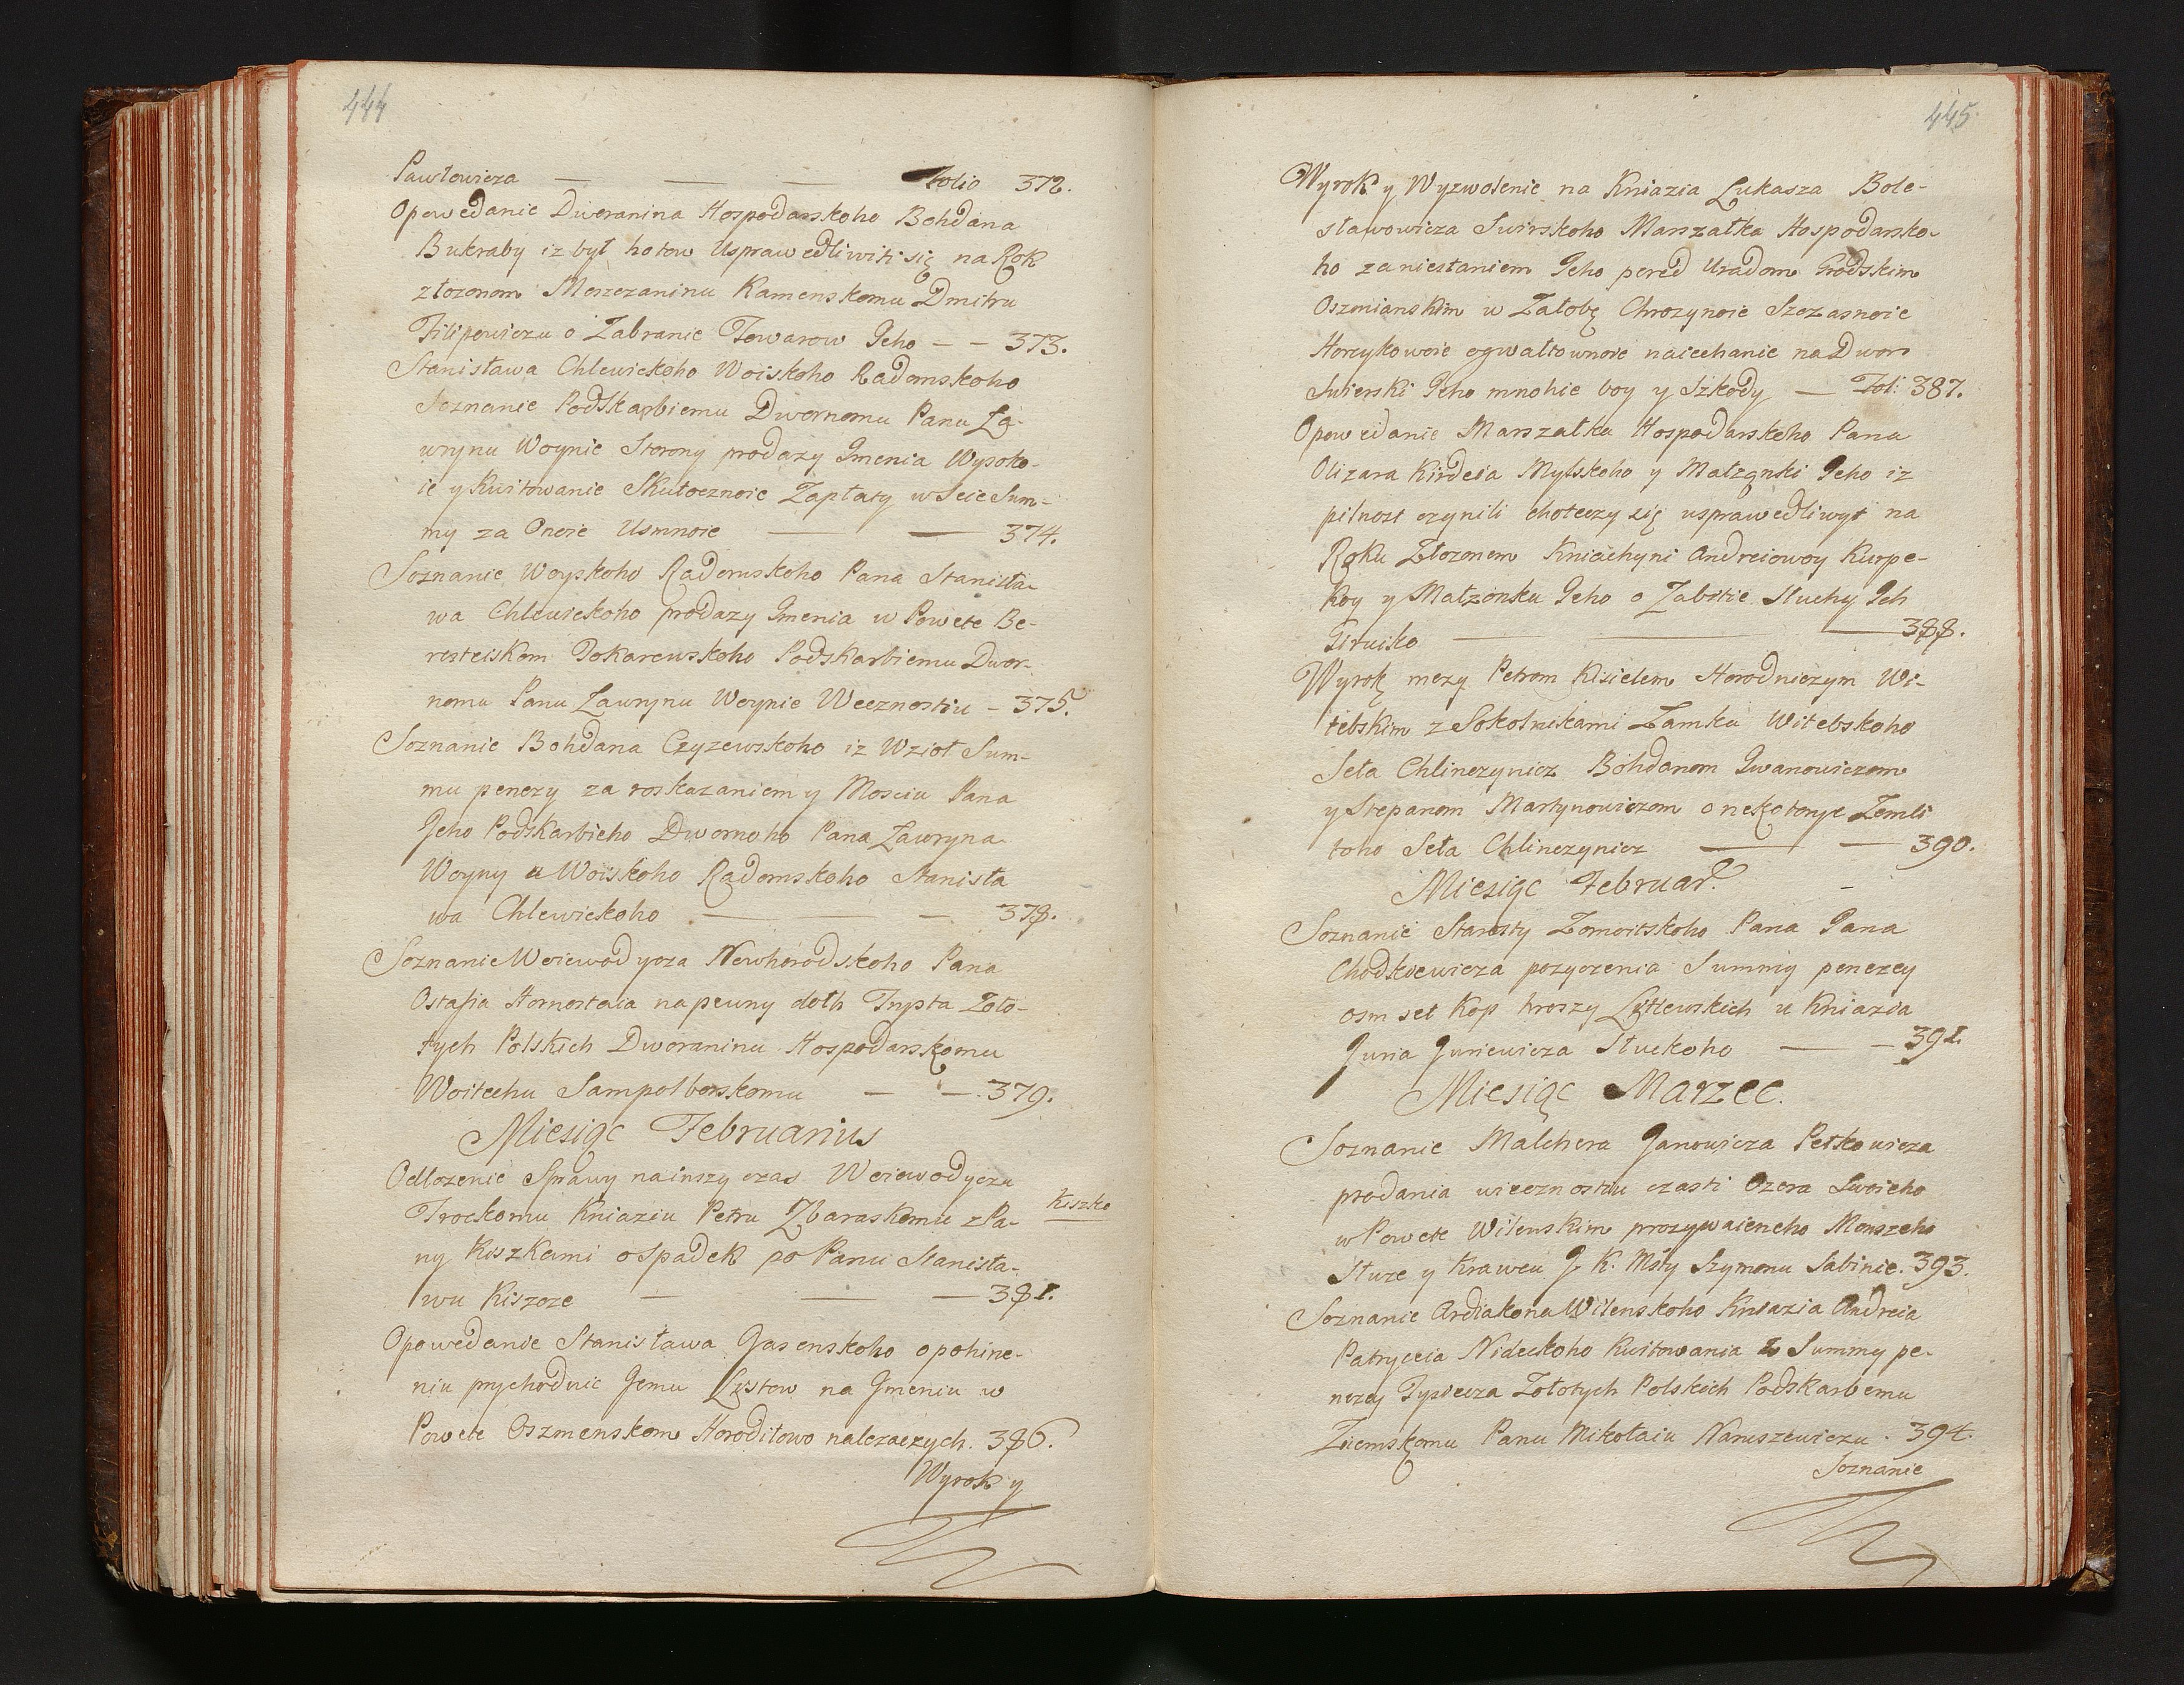 444
Pawłowicza — — — Folio 372.
Opowedanie Dworanina Hospodarskoho Bohdana
Bukraby iz był hotow Usprawedliwiti się na Rok
złozonom Meszczaninu Kamenskomu Dmitru
Filipowiczu o Zabranie Towarow Jeho – – 373.
Stanisława Chlewickoho Woiskoho Radomskoho
Soznanie Podskarbiemu Dwornomu Panu La-
wrynu Woynie Storony prodazy Jmenia Wysoko-
ie y Kwitowanie Skutocznoie Zapłaty wseie Sum-
my za Onoie Usmnoie — — 374.
Soznanie Woyskoho Radomskoho Pana Stanisła-
wa Chlewickoho prodazy Jmenia w Powete Be-
resteiskom Tokarewskoho Podskarbiemu Dwor-
nomu Panu Lawrynu Woynie Wecznostiu – 375.
Soznanie Bohdana Czyzewskoho iz Wzioł Sum-
mu penezy za roskazaniem y Mosciu Pana
Jeho Podskarbieho Dwornoho Pana Lawryna
Woyny u Woiskoho Radomskoho Stanisła
wa Chlewickoho — — 378.
Soznanie Woiewodycza Nowhorodskoho Pana
Ostafia Hornostaia na pewny dołh Trysta Zoło-
tych Polskich Dworaninu Hospodarskomu
Woitechu Sampolborskomu — — 379.
Miesiąc Februarius
Odłozenie Sprawy na inszy czas Woiewodyczu
Trockomu Kniaziu Petru Zbaraskomu z Pa-
Kiszko
ny Kiszkami o Spadek po Panu Stanisła-
wu Kiszcze — — — 381.
Opowedanie Stanisława Jasenskoho o pohine-
niu prychodnie Jemu Listow na Jmeniu w
Powete Oszmenskom Horoditowo nalezaczych. 386.
Wyrok y
445
Wyrok y Wyzwolenie na Kniazia Lukasza Bole-
sławowicza Swirskoho Marszałka Hospodarsko-
ho za niestaniem Jeho pered Uradom Grodskim
Oszmianskim w Załobę Chrozynoie Szczasnoie
Horcykowoie o gwałtownoie naiechanie na Dwor
Swierski Jeho mnohie boy y Szkody — Fol: 387.
Opowedanie Marszałka Hospodarskoho Pana
Olizara Kirdeia Mylskoho y Małzonki Jeho iz
pilnost czynili choteczy się usprawedliwyt na
Roku Złozonem Kniachyni Andreiowoy Kurpe-
koy y Małzonku Jeho o Zabitie Sluchy Jch
— — — 388.
Wyrok mezy Petrom Kisielem Horodniczym Wi-
tebskim z Sokolnikami Zamku Witebskoho
Seła Chlinczynicz Bohdanom Jwanowiczom
y Stepanom Martynowiczom o nekotoryie Zemli
toho Seła Chlinczynicz — — 390.
Miesiąc Februar.
Soznanie Starosty Zomoitskoho Pana Jana
Chodkiewicza pozyczenia Summy penezey
osm set Kop hroszy Litewskich u Kniazia
Juria Juriewicza Sluckoho — — 391.
Miesiąc Marzec.
Soznanie Malchera Janowicza Petkowicza
prodania wiecznostiu czasti Ozera Swoieho
w Powete Wilenskim prozywaiemoho Monszeho
Sture y Krawcu J. K. Msty Szymonu Sabinie. 393.
Soznanie Ardiakona Wilenskoho Kniazia Andreia
Patryceia Nideckoho Kwitowania z Summy pe-
nezey Tysiecza Zołotych Polskich Podskarbemu
Ziemskomu Panu Mikołaiu Naruszewiczu. 394.
Soznanie